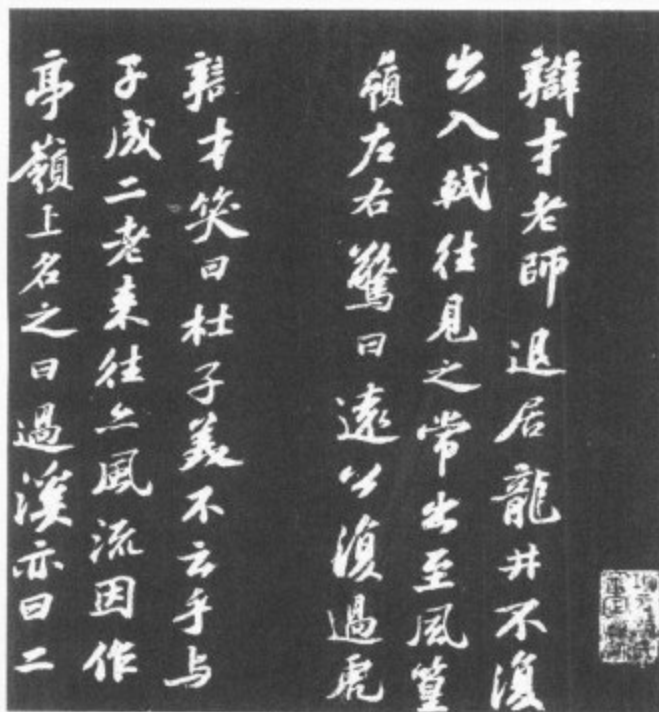 辯才老師退居龍井不復
出入軾往見之常出至風篁
嶺左右驚曰遠公復過虎
辯才笑曰杜子美不云乎与
子成二老来往亦風流因作
亭嶺上名之曰過溪亦曰二